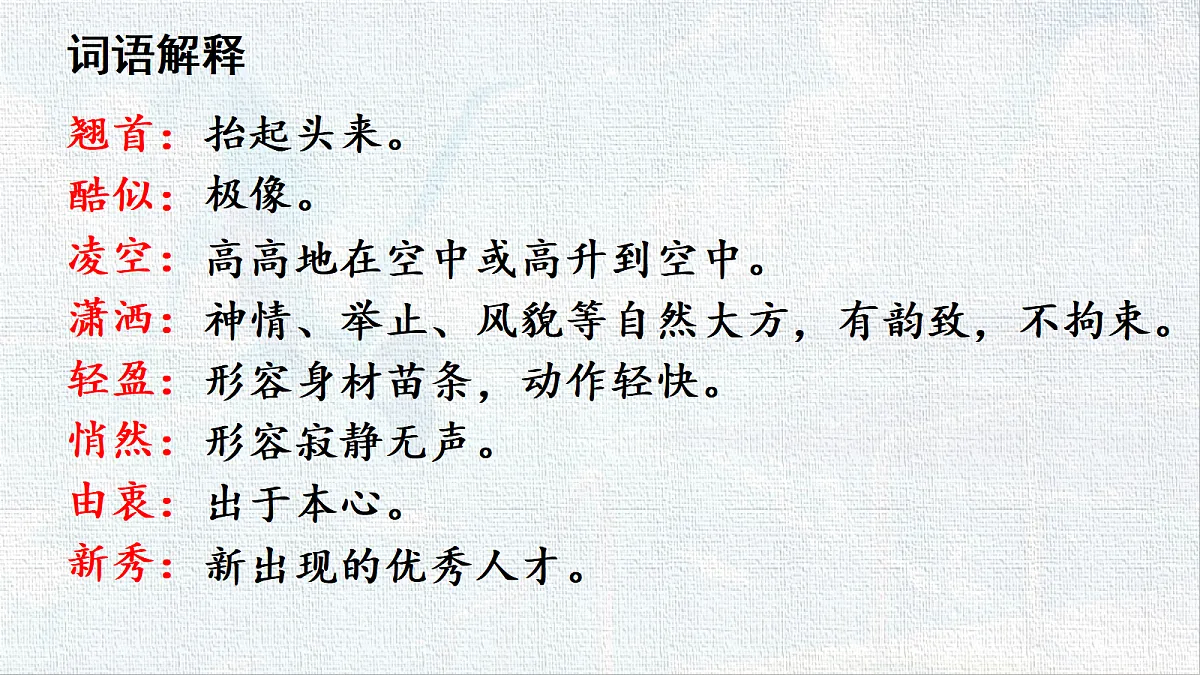 词语解释
翘首：抬起头来。
酷似：极像。
凌空：高高地在空中或高升到空中。
潇洒：神情、举止、风貌等自然大方，有韵致，不拘束。
轻盈：形容身材苗条，动作轻快。
悄然：形容寂静无声。
由衷：出于本心。
新秀：新出现的优秀人才。